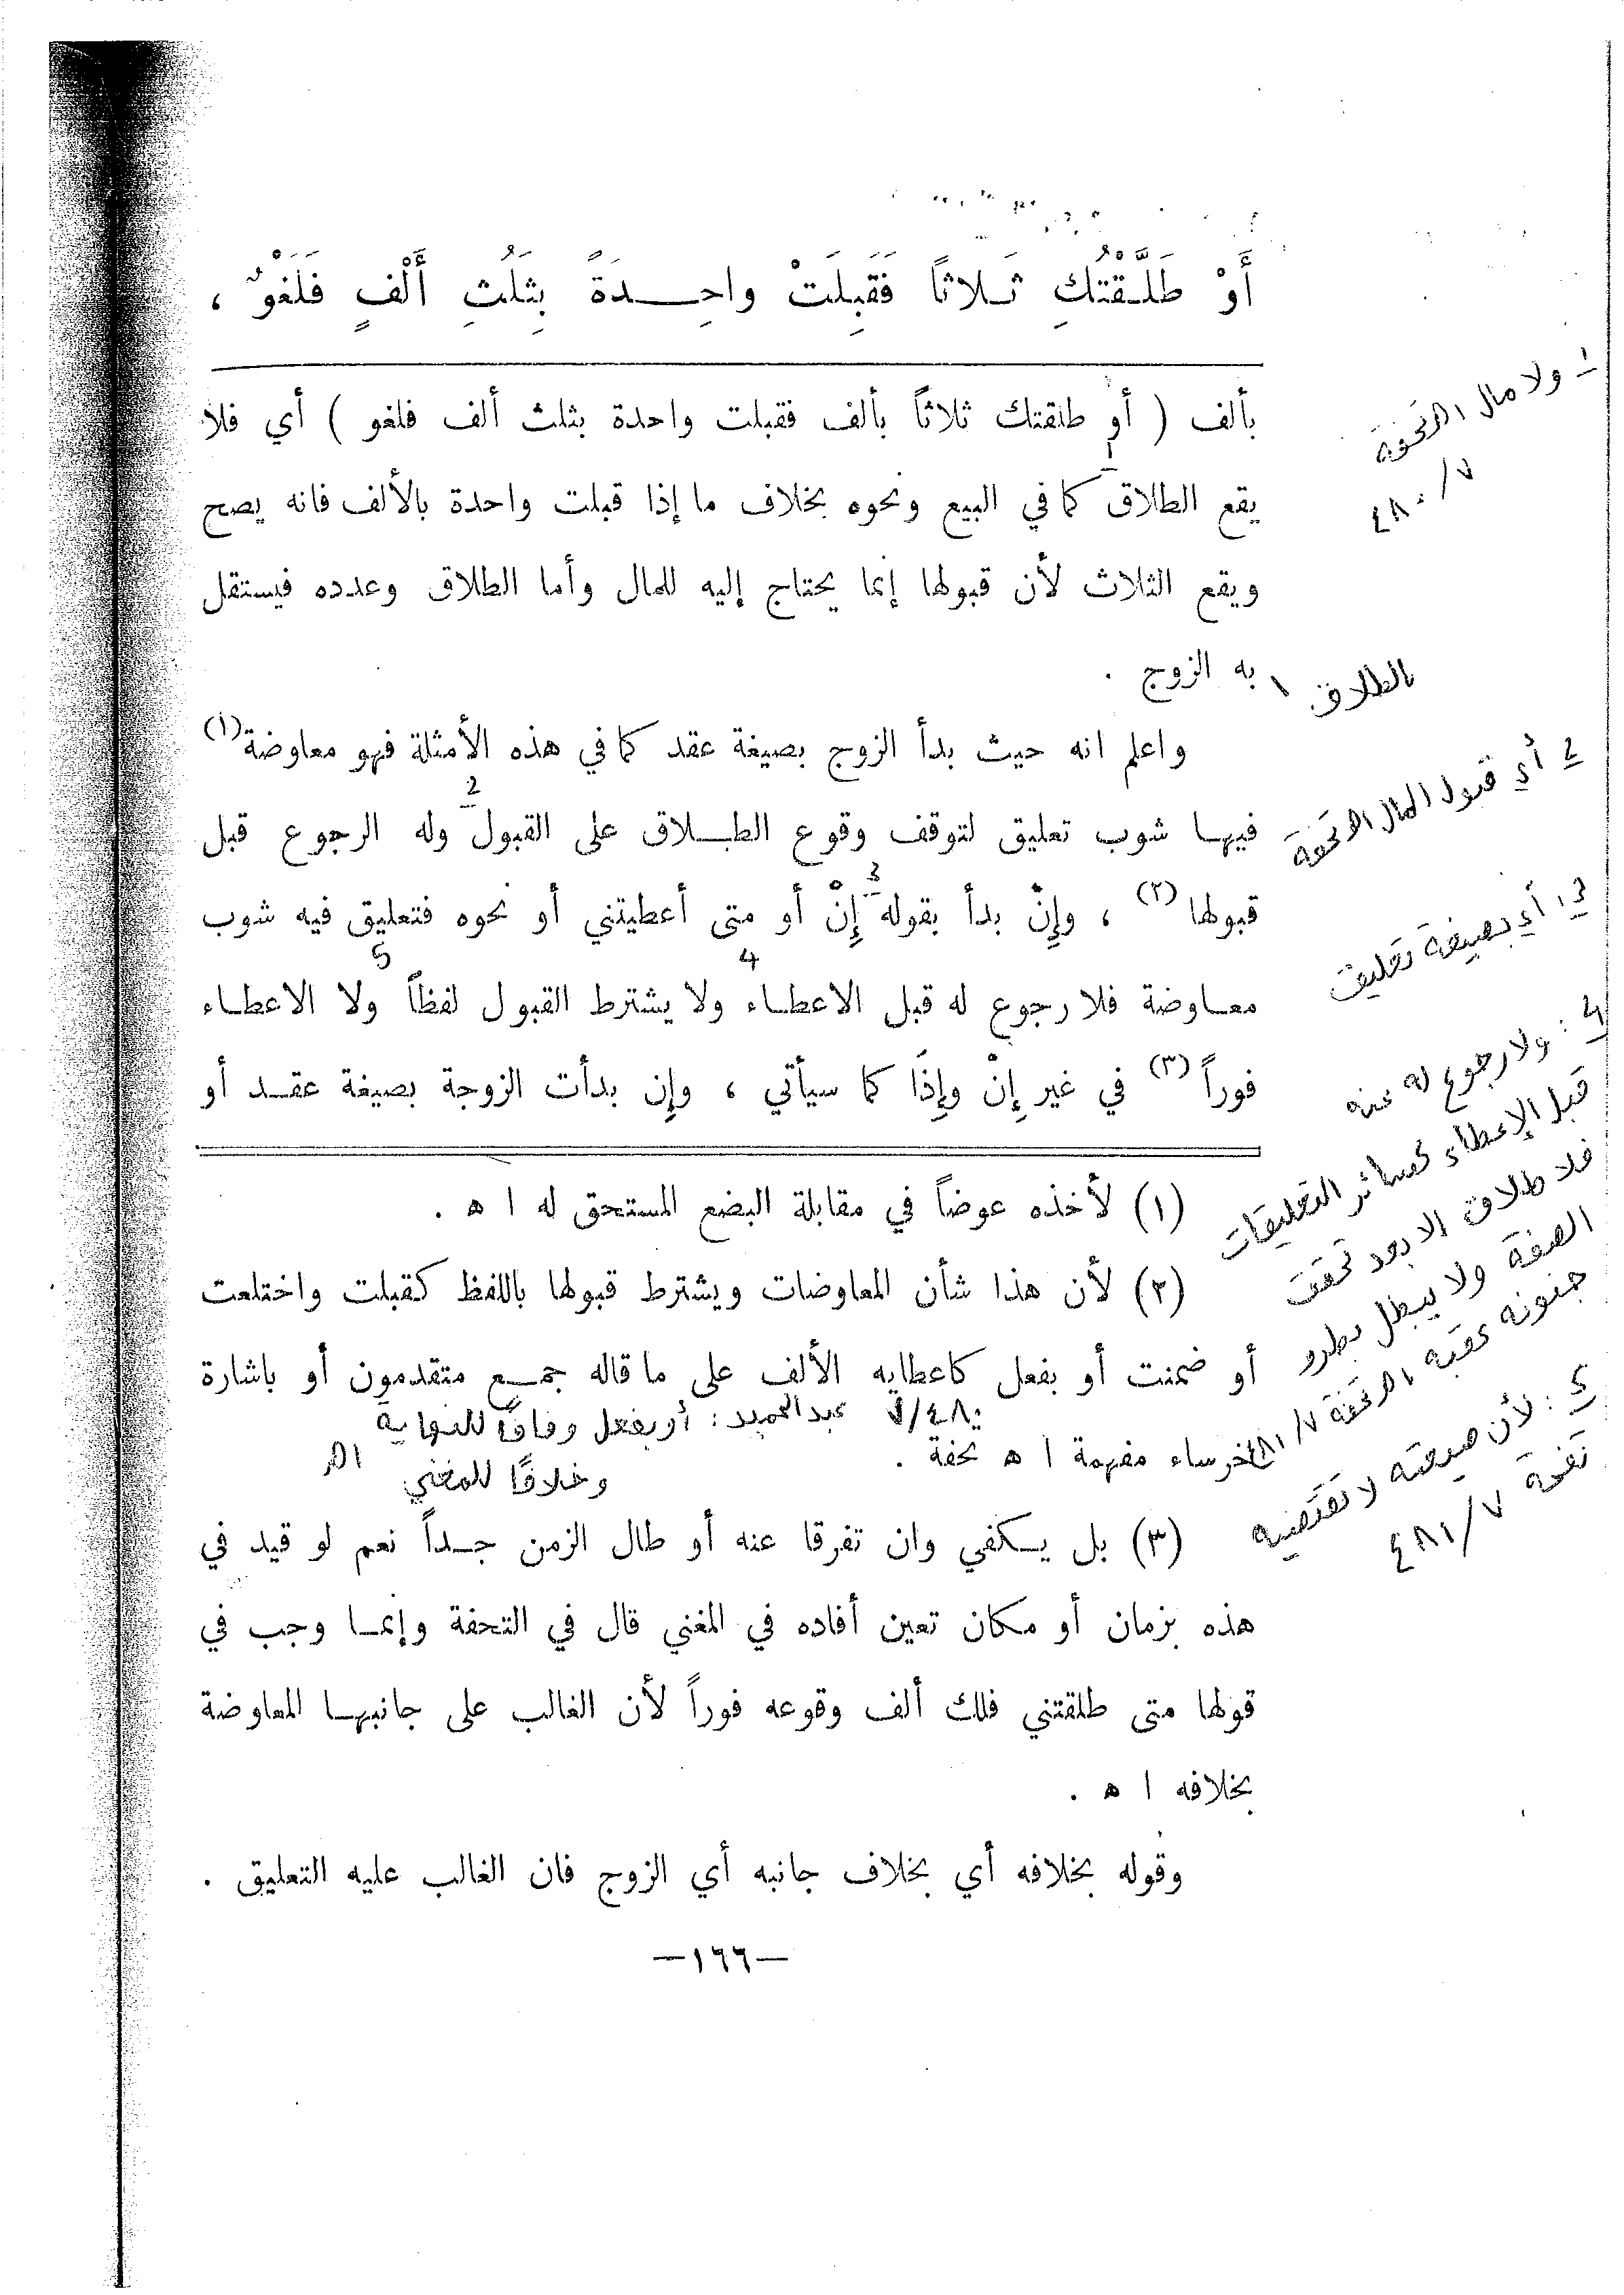 أَوْ طَلَّـقْتُكِ ثَـلاثاً فَقَبِلَتْ واحِـــدَةً بِثُلُثِ أَلْفٍ فَلَغْوٌ ،
بألف ( أو طلقتك ثلاثاً بألف فقبلت واحدة بثلث ألف فلغو ) أي فلا
يقع الطلاق كما في البيع ونحوه بخلاف ما إذا قبلت واحدة بالألف فانه يصح
ويقع الثلاث لأن قبولها إنما يحتاج إليه للمال وأما الطلاق وعدده فيستقل
به الزوج .
واعلم انه حيث بدأ الزوج بصيغة عقد كما في هذه الأمثلة فهو معاوضة (١)
فيهـا شوب تعليق لتوقف وقوع الطـلاق على القبول 2 وله الرجوع قبل
قبولها (٢) ، وإِنْ بدأ بقوله 3 إِنْ أو متى أعطيتني أو نحوه فتعليق فيه شوب
معـاوضة فلا رجوع له قبل الاعطـاء 4 ولا يشترط القبول لفظاً 5 ولا الاعطـاء
فوراً (٣) في غير إِنْ وإِذَا كما سيأتي ، وإِن بدأت الزوجة بصيغة عقـد أو
(١) لأخذه عوضاً في مقابلة البضع المستحق له ا ه .
(٢) لأن هذا شأن المعاوضات ويشترط قبولها باللفظ كقبلت واختلعت
أو ضمنت أو بفعل كاعطايه الألف على ما قاله جمـع متقدمون أو باشارة
خرساء مفهمة ا ه تحفة .
٧/٤٨٠ عبدالحميد : أو بفعل وفاقًا للنهاية
وخلافًا للمغني اهـ
(٣) بل يـكفي وان تفرقا عنه أو طال الزمن جـداً نعم لو قيد في
هذه بزمان أو مكان تعين أفاده في المغني قال في التحفة وإنمـا وجب في
قولها متى طلقتني فلك ألف وقوعه فوراً لأن الغالب على جانبهـا المعاوضة
بخلافه ا ه .
وقوله بخلافه أي بخلاف جانبه أي الزوج فان الغالب عليه التعليق .
—١٦٦—
١ ولا مال اهـ تحفة
٧/٤٨٠
الطلاق
2 أي قبول المال اهـ تحفة
3 : أي بصيغة تعليق
4 : ولا رجوع له عنه
قبل الإعطاء كسائر التعليقات
فلا طلاق الا بعد تحقق
الصفة ولا يبطل بطرو
جنونه عقبه اهـ تحفة ٧/٤٨١
5 : لأن صيغته لا تقتضيه
تحفة ٧/٤٨١